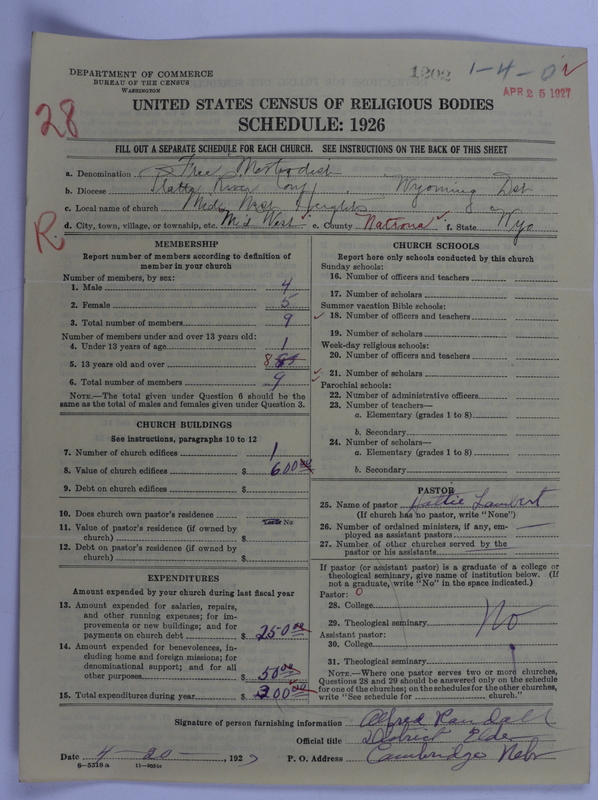 DEPARTMENT OF COMMERCE
BUREAU OF THE CENSUS
WASHINGTON
1202 1-4-0
APR 25 1927
28
UNITED STATES CENSUS OF RELIGIOUS BODIES
SCHEDULE: 1926
FILL OUT A SEPARATE SCHEDULE FOR EACH CHURCH. SEE INSTRUCTIONS ON THE BACK OF THIS SHEET
a. Denomination Free Methodist
b. Diocese Platte River Conf. Wyoming Dist
c. Local name of church Mid West Heights
d. City, town, village, or township, etc. Mid West e. County Natrona f. State Wyo
R.
MEMBERSHIP
Report number of members according to definition of
member in your church
Number of members, by sex:
1. Male 4
2. Female 5
3. Total number of members 9
Number of members under and over 13 years old:
4. Under 13 years of age 1
5. 13 years old and over 8
6. Total number of members 9
NOTE.—The total given under Question 6 should be the
same as the total of males and females given under Question 3.
CHURCH BUILDINGS
See instructions, paragraphs 10 to 12
7. Number of church edifices 1
8. Value of church edifices $ 600 00
9. Debt on church edifices $
10. Does church own pastor's residence Yes or No
11. Value of pastor's residence (if owned by
church) $
12. Debt on pastor's residence (if owned by
church) $
EXPENDITURES
Amount expended by your church during last fiscal year
13. Amount expended for salaries, repairs,
and other running expenses; for im-
provements or new buildings; and for
payments on church debt $ 250 00
14. Amount expended for benevolences, in-
cluding home and foreign missions; for
denominational support; and for all
other purposes $ 50 00
15. Total expenditures during year $ 300 00
CHURCH SCHOOLS
Report here only schools conducted by this church
Sunday schools:
16. Number of officers and teachers
17. Number of scholars
Summer vacation Bible schools:
18. Number of officers and teachers
19. Number of scholars
Week-day religious schools:
20. Number of officers and teachers
21. Number of scholars
Parochial schools:
22. Number of administrative officers
23. Number of teachers—
a. Elementary (grades 1 to 8)
b. Secondary
24. Number of scholars—
a. Elementary (grades 1 to 8)
b. Secondary
PASTOR
25. Name of pastor Hattie Lambert
(If church has no pastor, write "None")
26. Number of ordained ministers, if any, em-
ployed as assistant pastors
27. Number of other churches served by the
pastor or his assistants
If pastor (or assistant pastor) is a graduate of a college or
theological seminary, give name of institution below. (If
not a graduate, write "No" in the space indicated.)
Pastor: 0
28. College
29. Theological seminary No
Assistant pastor:
30. College
31. Theological seminary
NOTE.—Where one pastor serves two or more churches,
Questions 28 and 29 should be answered only on the schedule
for one of the churches; on the schedules for the other churches,
write "See schedule for church."
Signature of person furnishing information Alfred Randall
Official title District Elder
Date 4-20-, 1927 P. O. Address Cambridge Nebr
6—5318 a